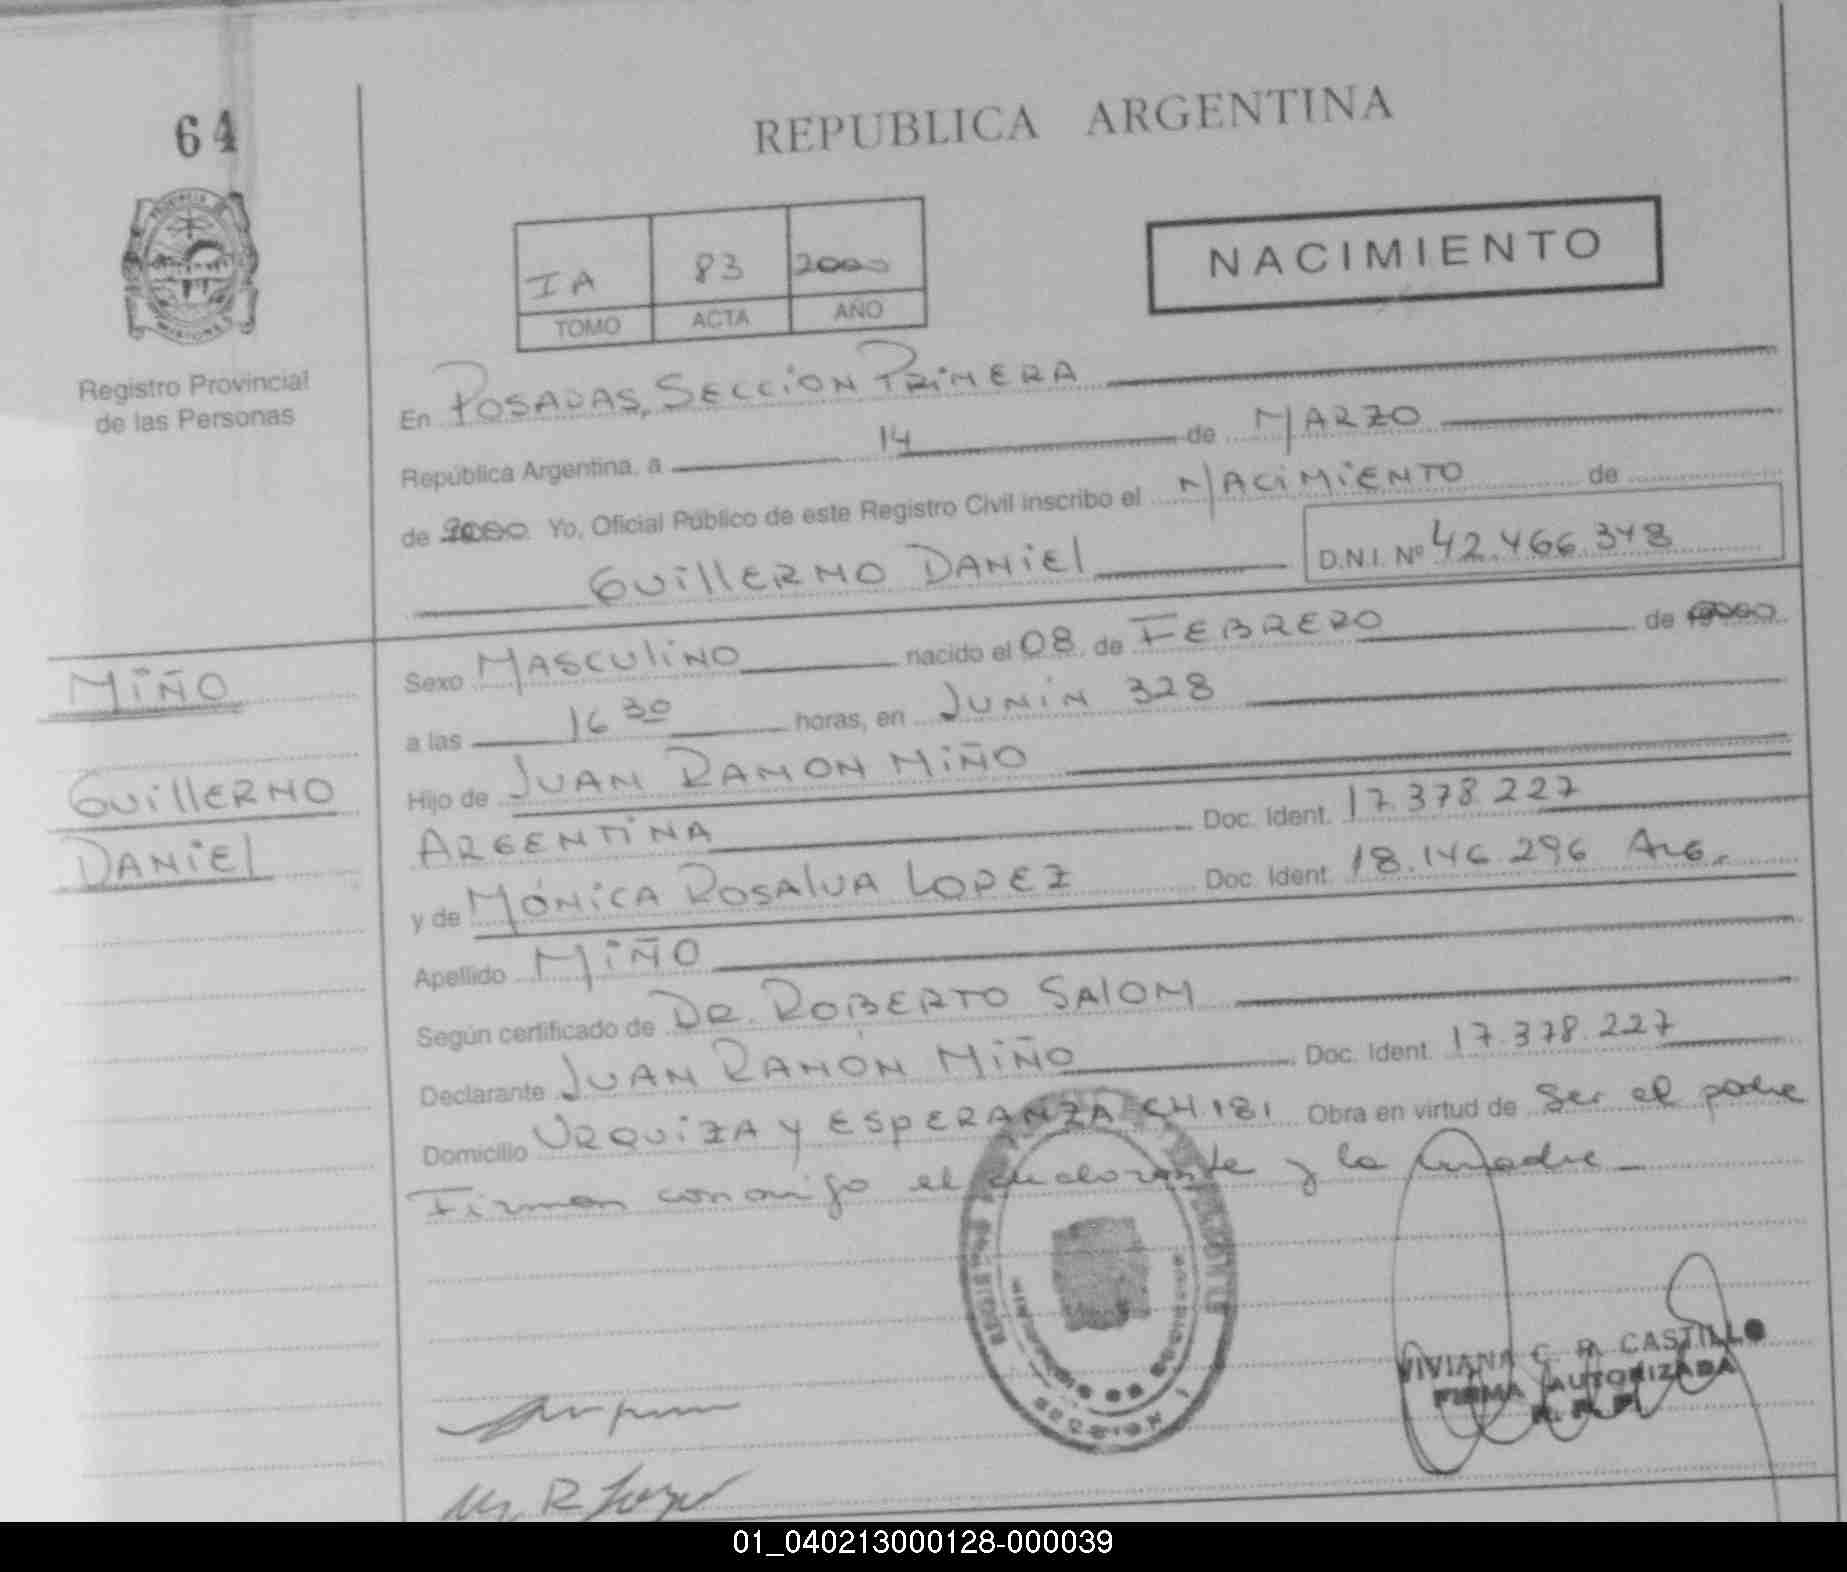 64
REPUBLICA ARGENTINA
IA 83 2000
TOMO ACTA AÑO
NACIMIENTO
Registro Provincial
de las Personas
En POSADAS, SECCION PRIMERA
República Argentina, a 14 de MARZO
de 2000 Yo, Oficial Público de este Registro Civil inscribo el NACIMIENTO de
GUILLERMO DANIEL D.N.I. Nº 42.466.348
MIÑO
GUILLERMO
DANIEL
Sexo MASCULINO nacido el 08 de FEBRERO de 2000
a las 16 30 horas, en JUNIN 328
Hijo de JUAN RAMON MIÑO
ARGENTINA Doc. Ident. 17.378.227
y de MÓNICA ROSALVA LOPEZ Doc. Ident. 18.146.296 ARG.
Apellido MIÑO
Según certificado de DR. ROBERTO SALOM
Declarante JUAN RAMÓN MIÑO Doc. Ident. 17.378.227
Domicilio URQUIZA Y ESPERANZA CH.181 Obra en virtud de ser el padre
Firman conmigo el declarante y la madre
SECCION 1
VIVIANA C. R. CASTILLO
FIRMA AUTORIZADA
R. P. P.
M. R. Lopez
01_040213000128-000039